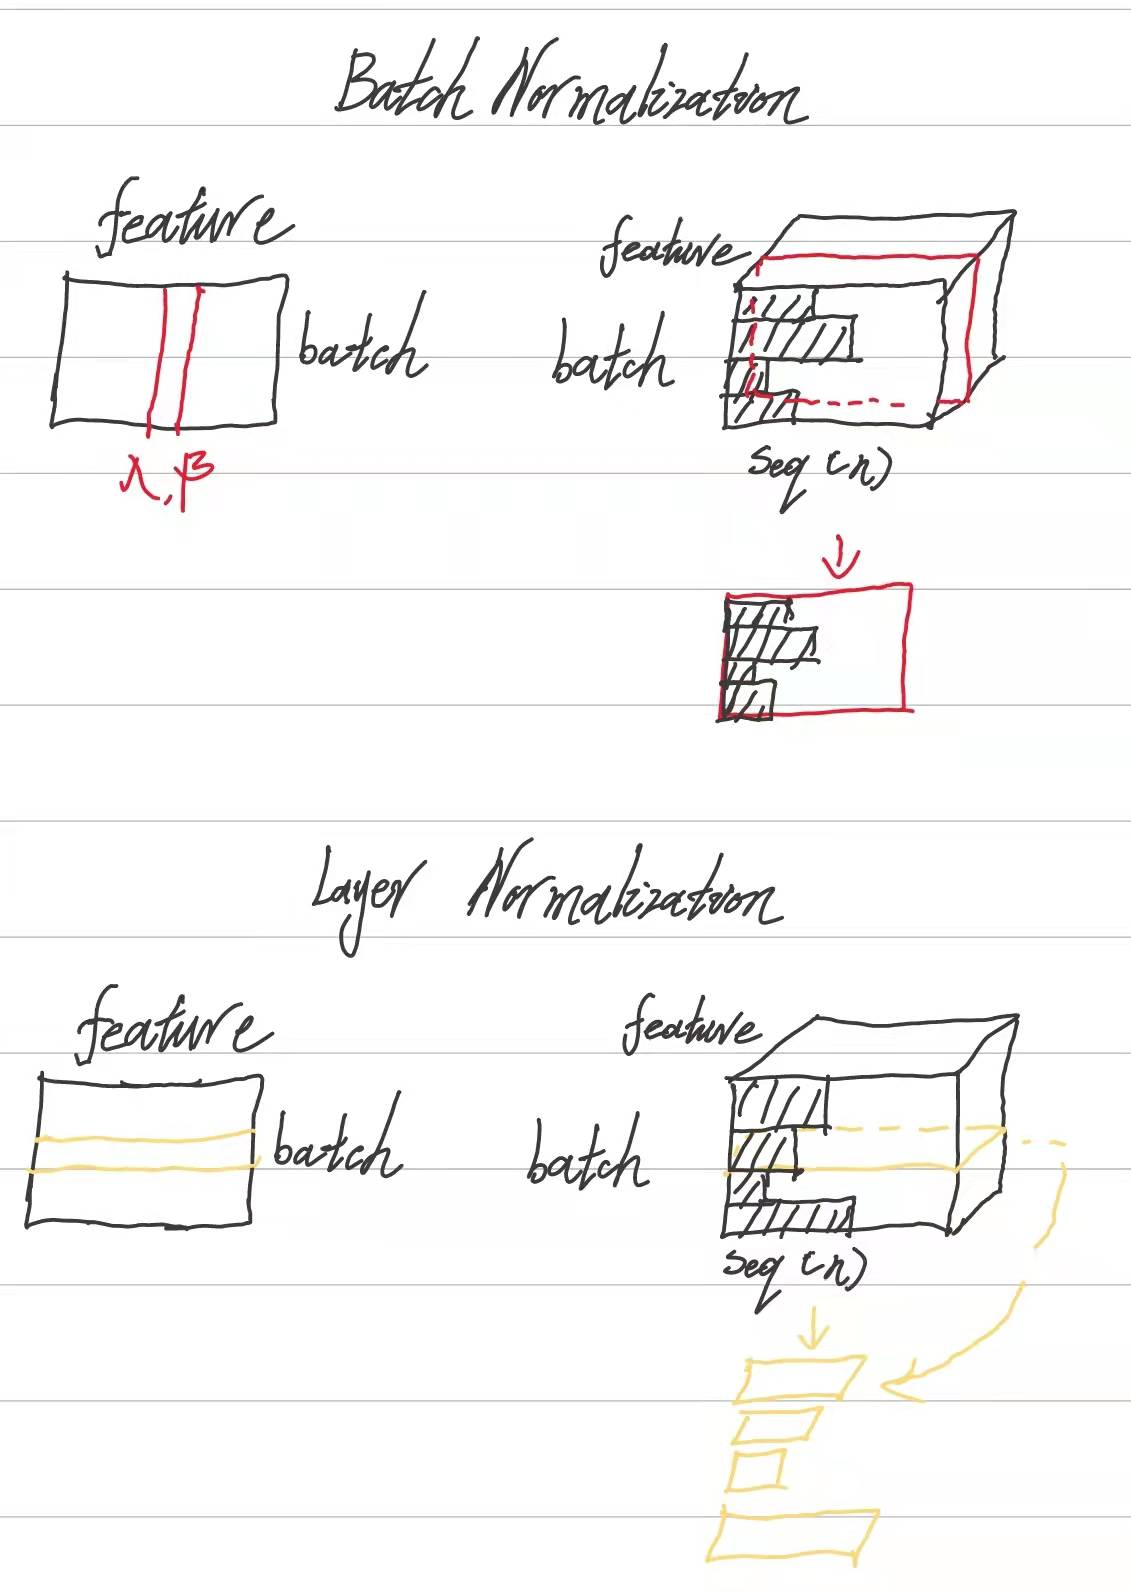 Batch Normalization
feature
batch
λ, β
feature
batch
seq (n)
Layer Normalization
feature
batch
feature
batch
seq (n)